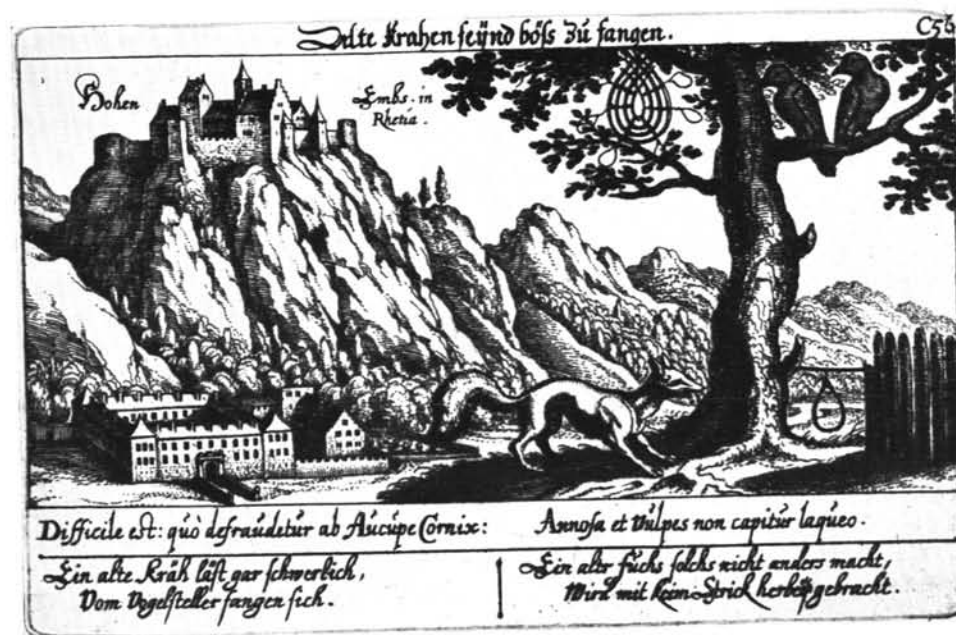 Alte Krahen seÿnd böss zu fangen.
C56
Hohen
Embs. in
Rhetia.
Difficile est: quò defraudetur ab Aucupe Cornix:
Annosa et Vulpes non capitur laqueo.
Ein alte Kräh läst gar schwerlich,
Vom Vogelsteller fangen sich.
Ein altr fuchs solchs nicht anders macht,
Wird mit keim Strick herbeÿ gebracht.